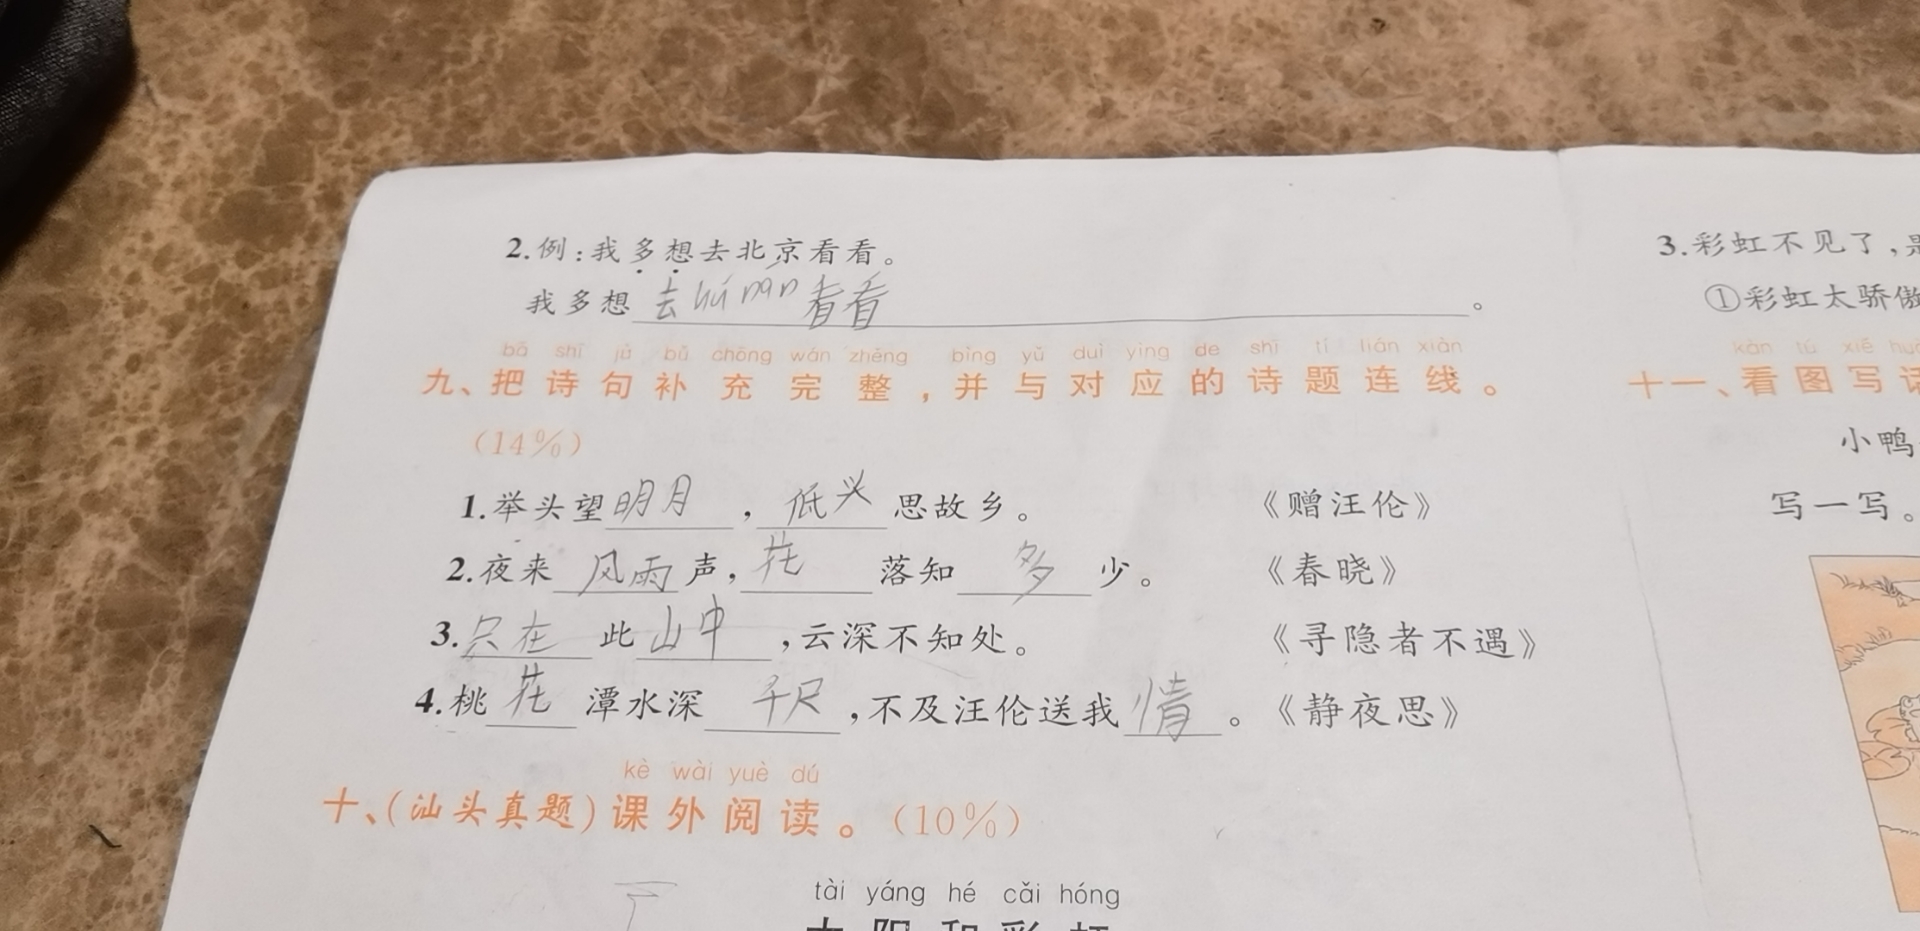 2.例:我多想去北京看看。
我多想去hú nán看看。
bǎ shī jù bǔ chōng wán zhěng bìng yǔ duì yìng de shī tí lián xiàn
九、把诗句补充完整,并与对应的诗题连线。
(14%)
1.举头望明月,低头思故乡。 《赠汪伦》
2.夜来风雨声,花落知多少。 《春晓》
3.只在此山中,云深不知处。 《寻隐者不遇》
4.桃花潭水深千尺,不及汪伦送我情。 《静夜思》
kè wài yuè dú
十、(汕头真题)课外阅读。(10%)
tài yáng hé cǎi hóng
太阳和彩虹
3.彩虹不见了,是
①彩虹太骄傲
kàn tú xiě huà
十一、看图写话
小鸭
写一写。